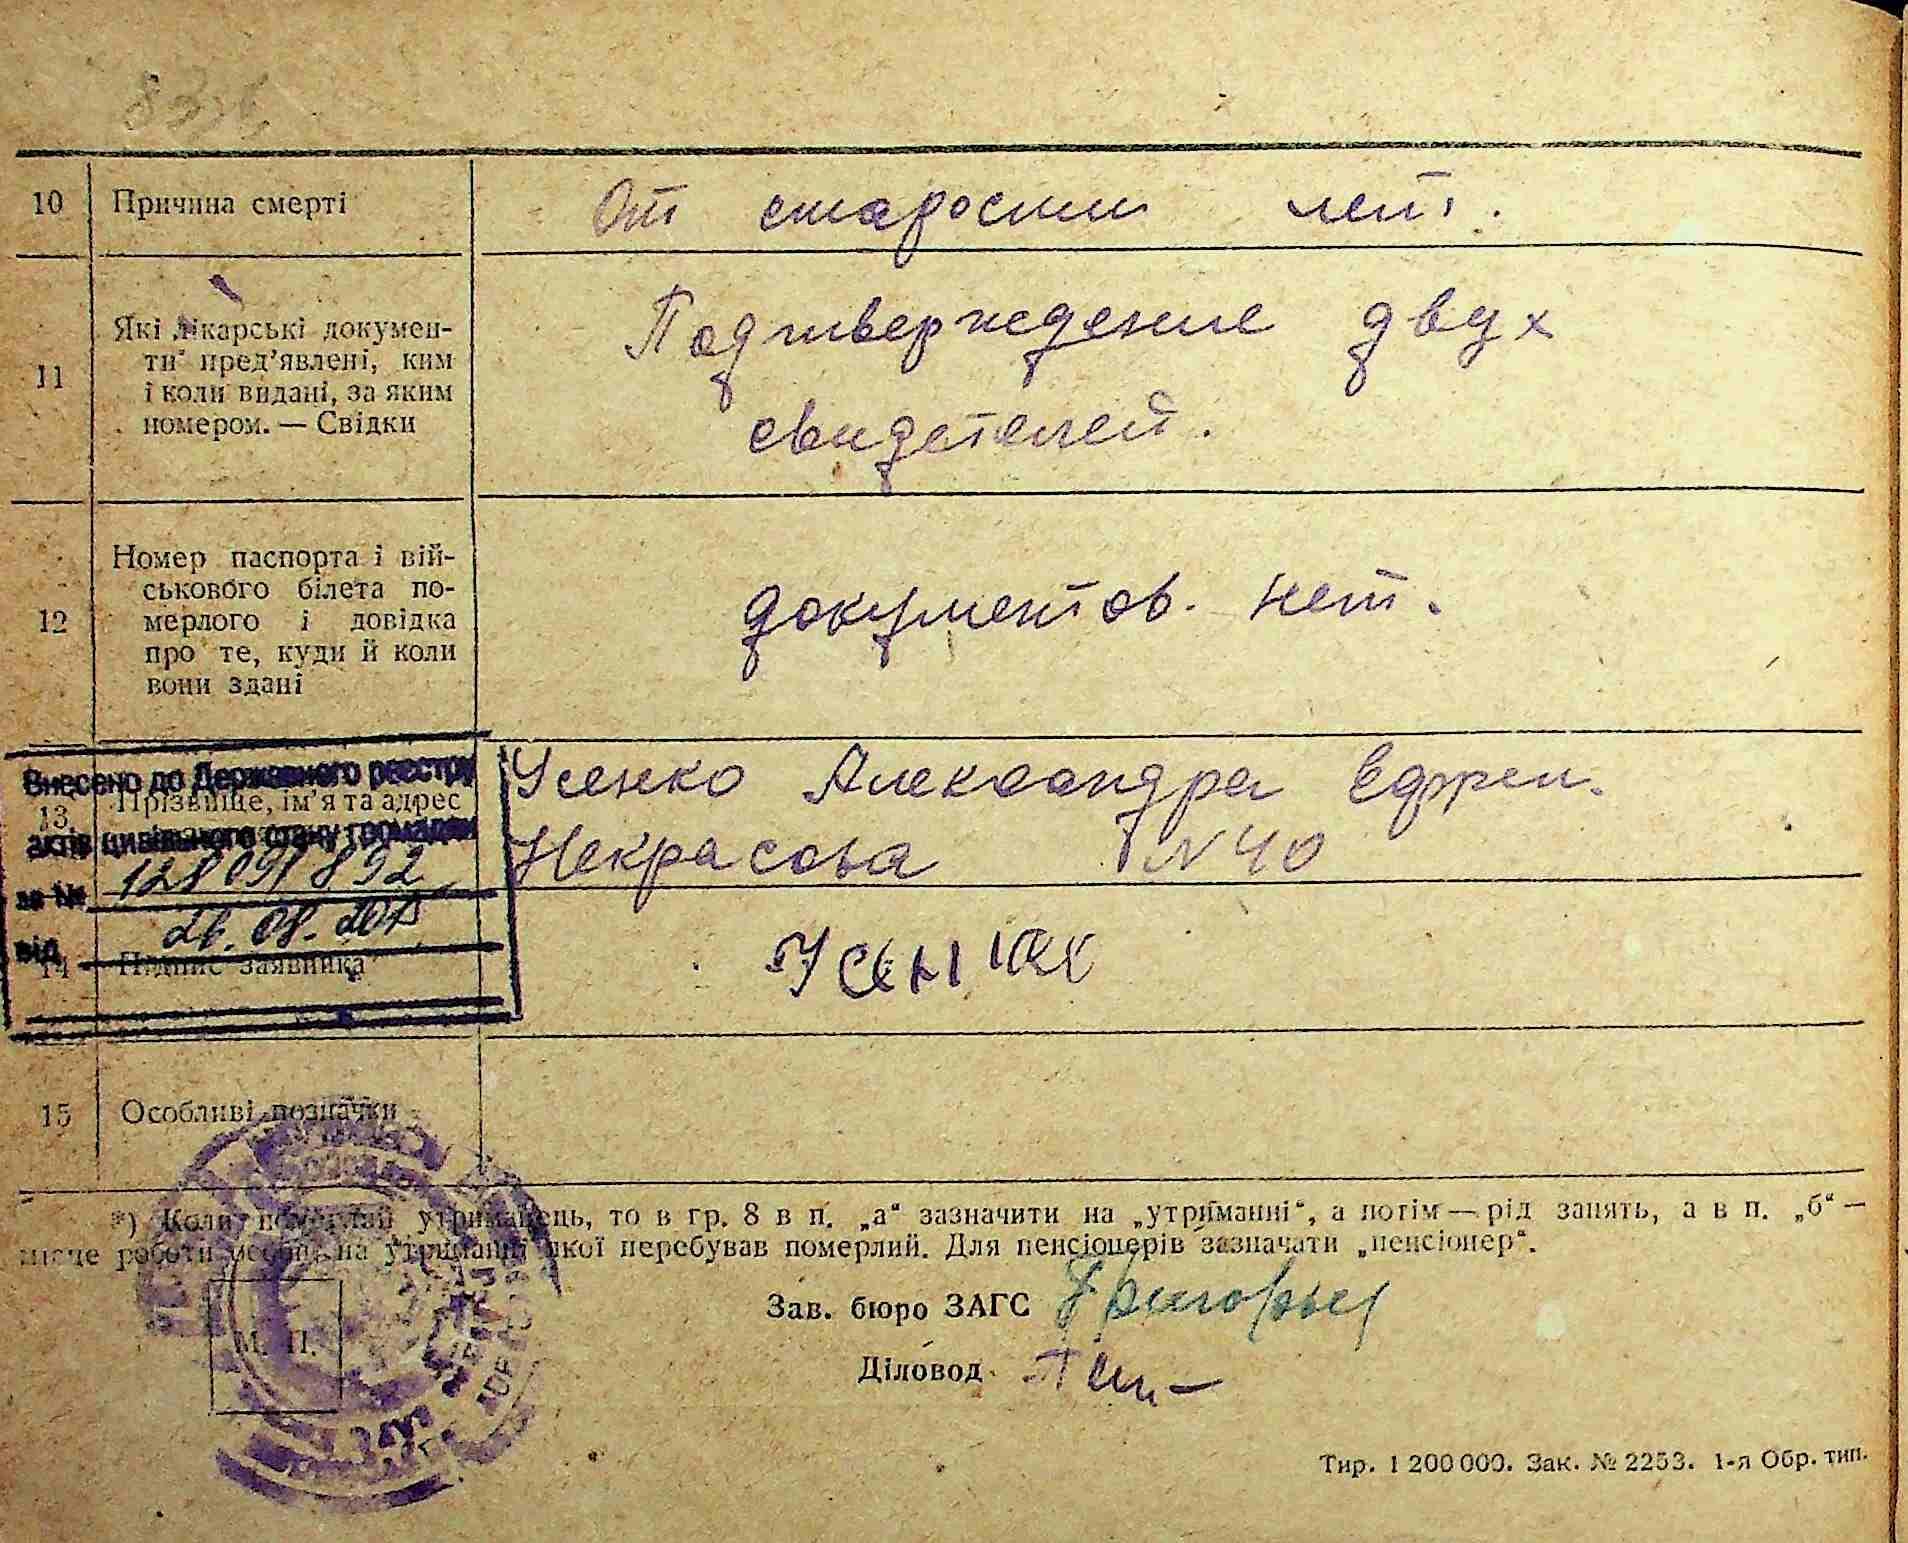 10 Причина смерті От старости лет.
11 Які лікарські докумен-
ти пред’явлені, ким
і коли видані, за яким
номером. — Свідки
Подтверждение двух
свидетелей.
12 Номер паспорта і вій-
ськового білета по-
мерлого і довідка
про те, куди й коли
вони здані
документов. нет.
Внесено до Державного реєстру
13 Прізвище, ім’я та адрес
актів цивільного стану громадян
за № 128091892
від 26.08.
Усенко Александра Ефрем.
Некрасова N 40
14 Підпис заявника
15 Особливі позначки
*) Коли померлий утриманець, то в гр. 8 в п. „а“ зазначити на „утриманні“, а потім — рід занять, а в п. „б“ —
місце роботи особи, на утриманні якої перебував померлий. Для пенсіонерів зазначати „пенсіонер“.
М. П.
Зав. бюро ЗАГС
Діловод
Тир. 1 200 000. Зак. № 2253. 1-я Обр. тип.